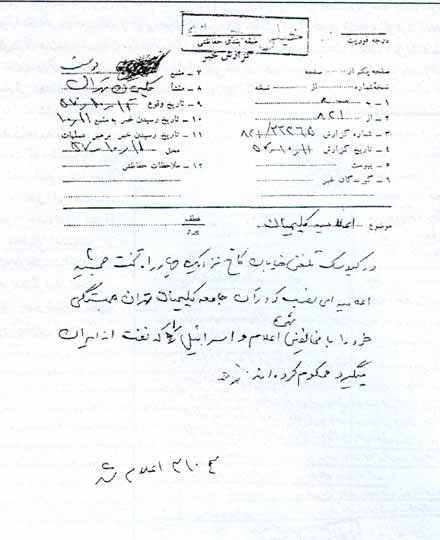 درجه فوریت
خیلی محرمانه
طبقه بندی حفاظتی
گزارش خبر
صفحه یکم از صفحه
نسخه شماره از نسخه
۱ - به
۲ - از ۸۲۱
۳ - شماره گزارش ۸۲۱/۲۲۲۶۵
۴ - تاریخ گزارش ۵۷-۱۰-۱۱
۵ - پیوست
۶ - گیرندگان خبر
۷ - منبع
۸ - منشأ کلیمیان تهران
۹ - تاریخ وقوع
۱۰ - تاریخ رسیدن خبر به منبع
۱۱ - تاریخ رسیدن خبر برهبر عملیات
محل ۵۷-۱۰-۱۱
۱۲ - ملاحظات حفاظتی
موضوع اعلامیه کلیمیان
عطف
در کیوسک تلفن خیابان کاخ نزدیک چهارراه تخت جمشید
اعلامیه ای نصب که در آن جامعه کلیمیان تهران همبستگی
خود را با مخالفین اعلام و اسرائیل را که نفت از ایران
میگیرد محکوم کرده اند
۳۱۰ ح اعلام شد